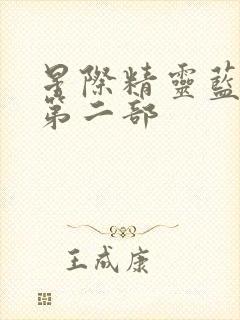 星際精靈藍
第二部
王成康